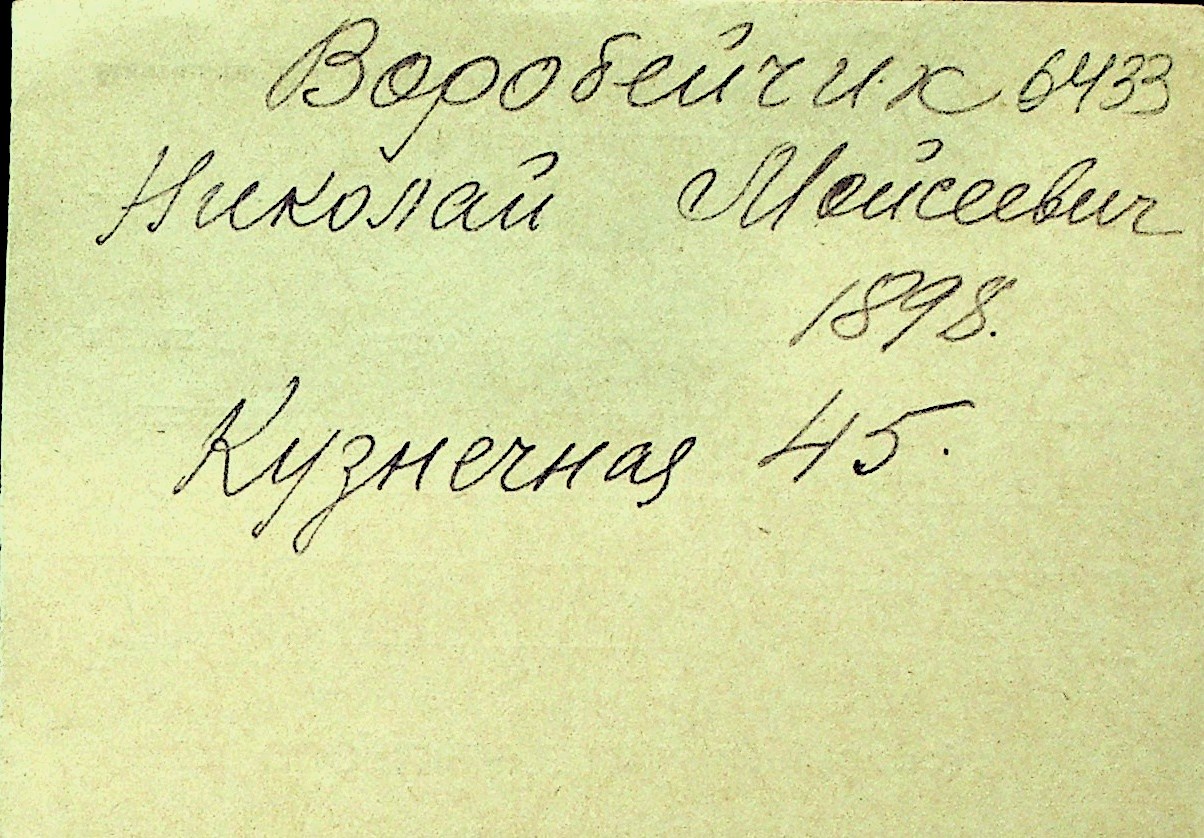 Воробейчик 6433
Николай Моисеевич
1898.
Кузнечная 45.